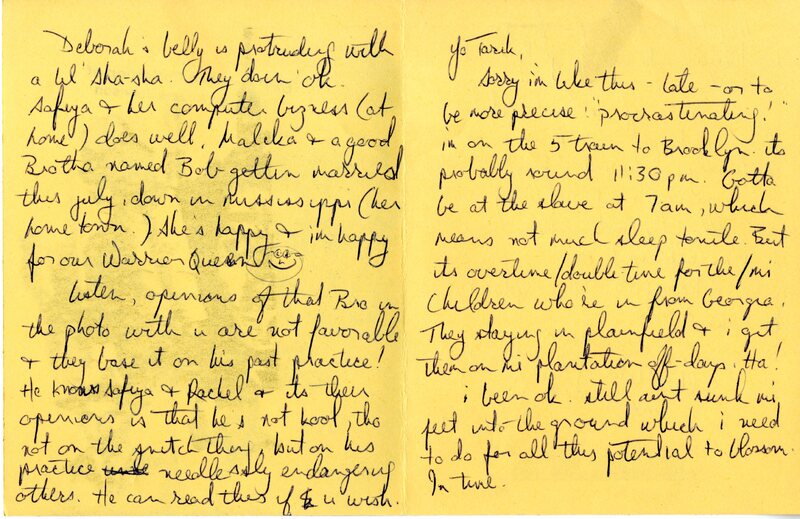 Deborah's belly is protruding with
a lil' sha-sha. They doin' ok.
Safiya & her computer bizness (at
home) does well. Malika & a good
Brotha named Bob gettin married
this july, down in mississippi (her
home town.) She's happy & im happy
for our Warrior Queen
Listen, opinions of that Bro in
the photo with u are not favorable
& they base it on his past practice!
He knows Safiya & Rachel & its their
opinions is that he's not kool, tho
not on the snitch thing, but on his
practice needlessly endangering
others. He can read this if u wish.
Yo Tarik,
Sorry im like this - late - or to
be more precise: "procrastinating!"
im on the 5 train to Brooklyn. its
probably round 11:30 pm. Gotta
be at the slave at 7am, which
means not much sleep tonite. But
its overtime/double time for the/mi
Children who're in from Georgia.
They staying in plainfield & i get
them on mi plantation off-days. Ha!
i been ok. still aint sunk mi
feet into the ground which i need
to do for all this potential to blossom.
In time.